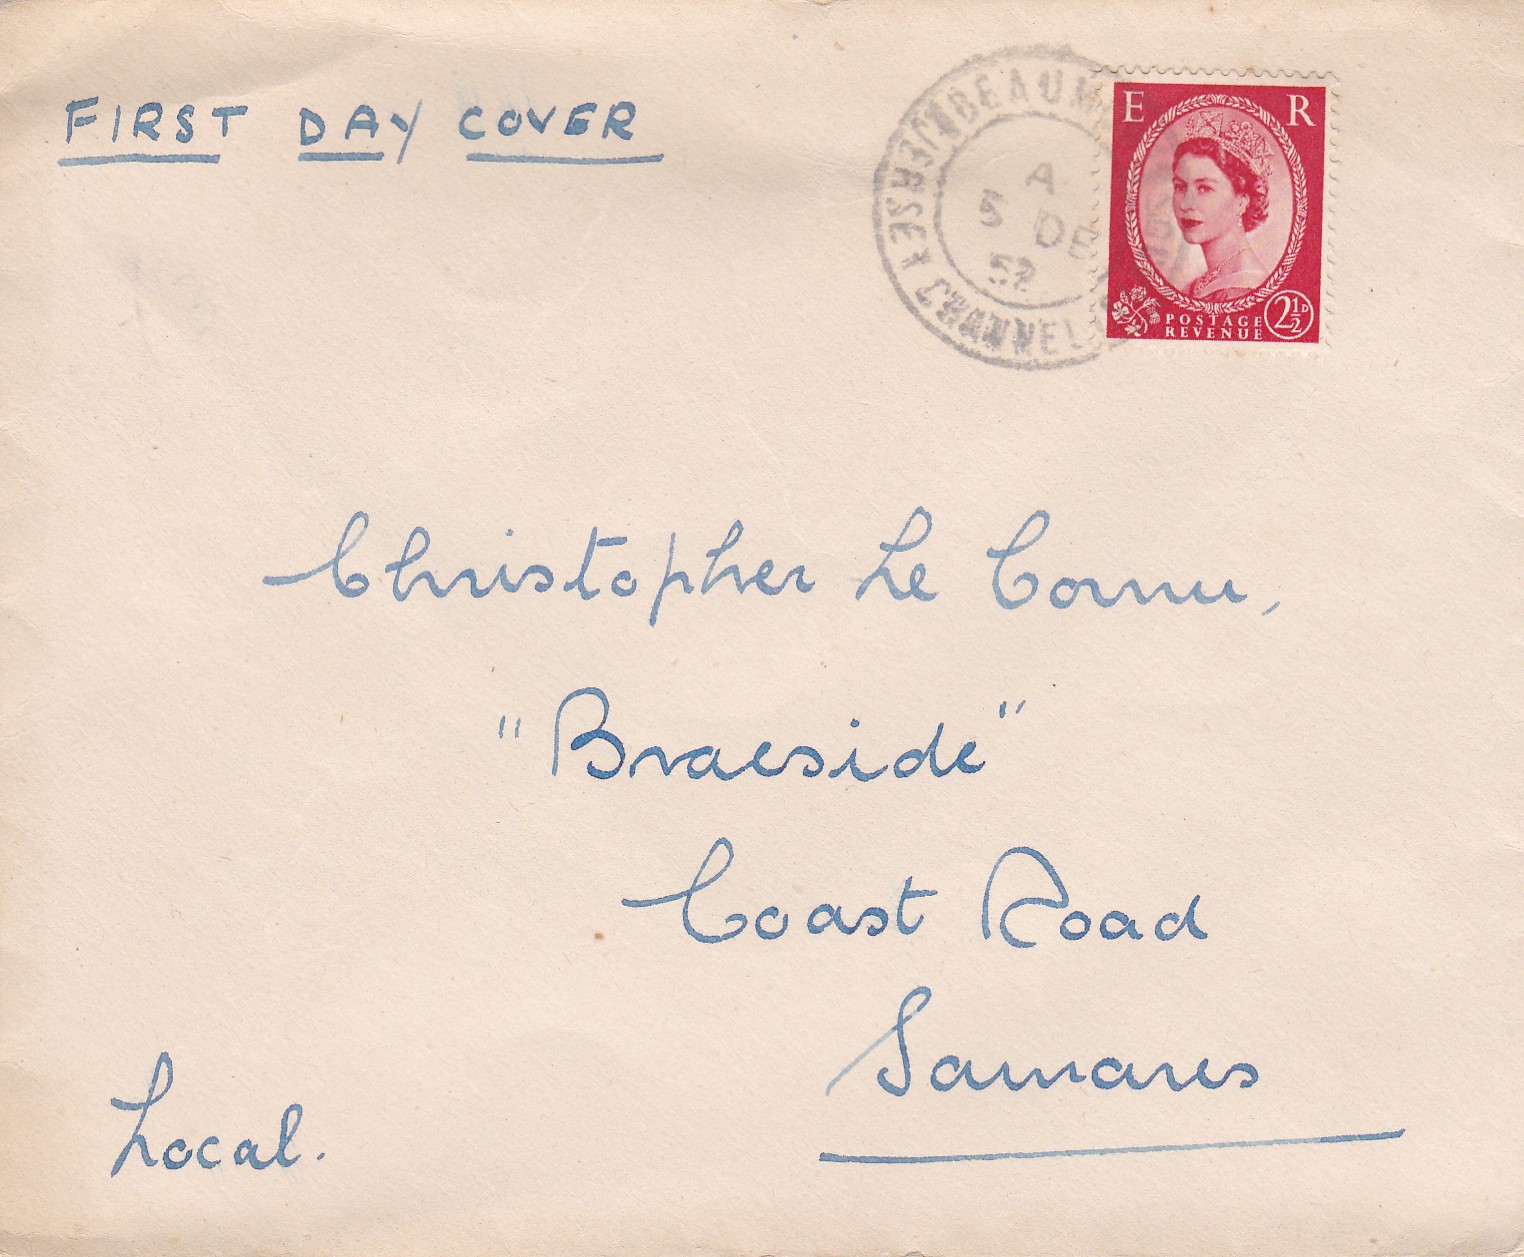 FIRST DAY COVER
BEAUM
JERSEY CHANNEL
A
5 DE
52
E R
POSTAGE
REVENUE
2½D
Christopher Le Cornu,
"Braeside"
Coast Road
Samares
Local.